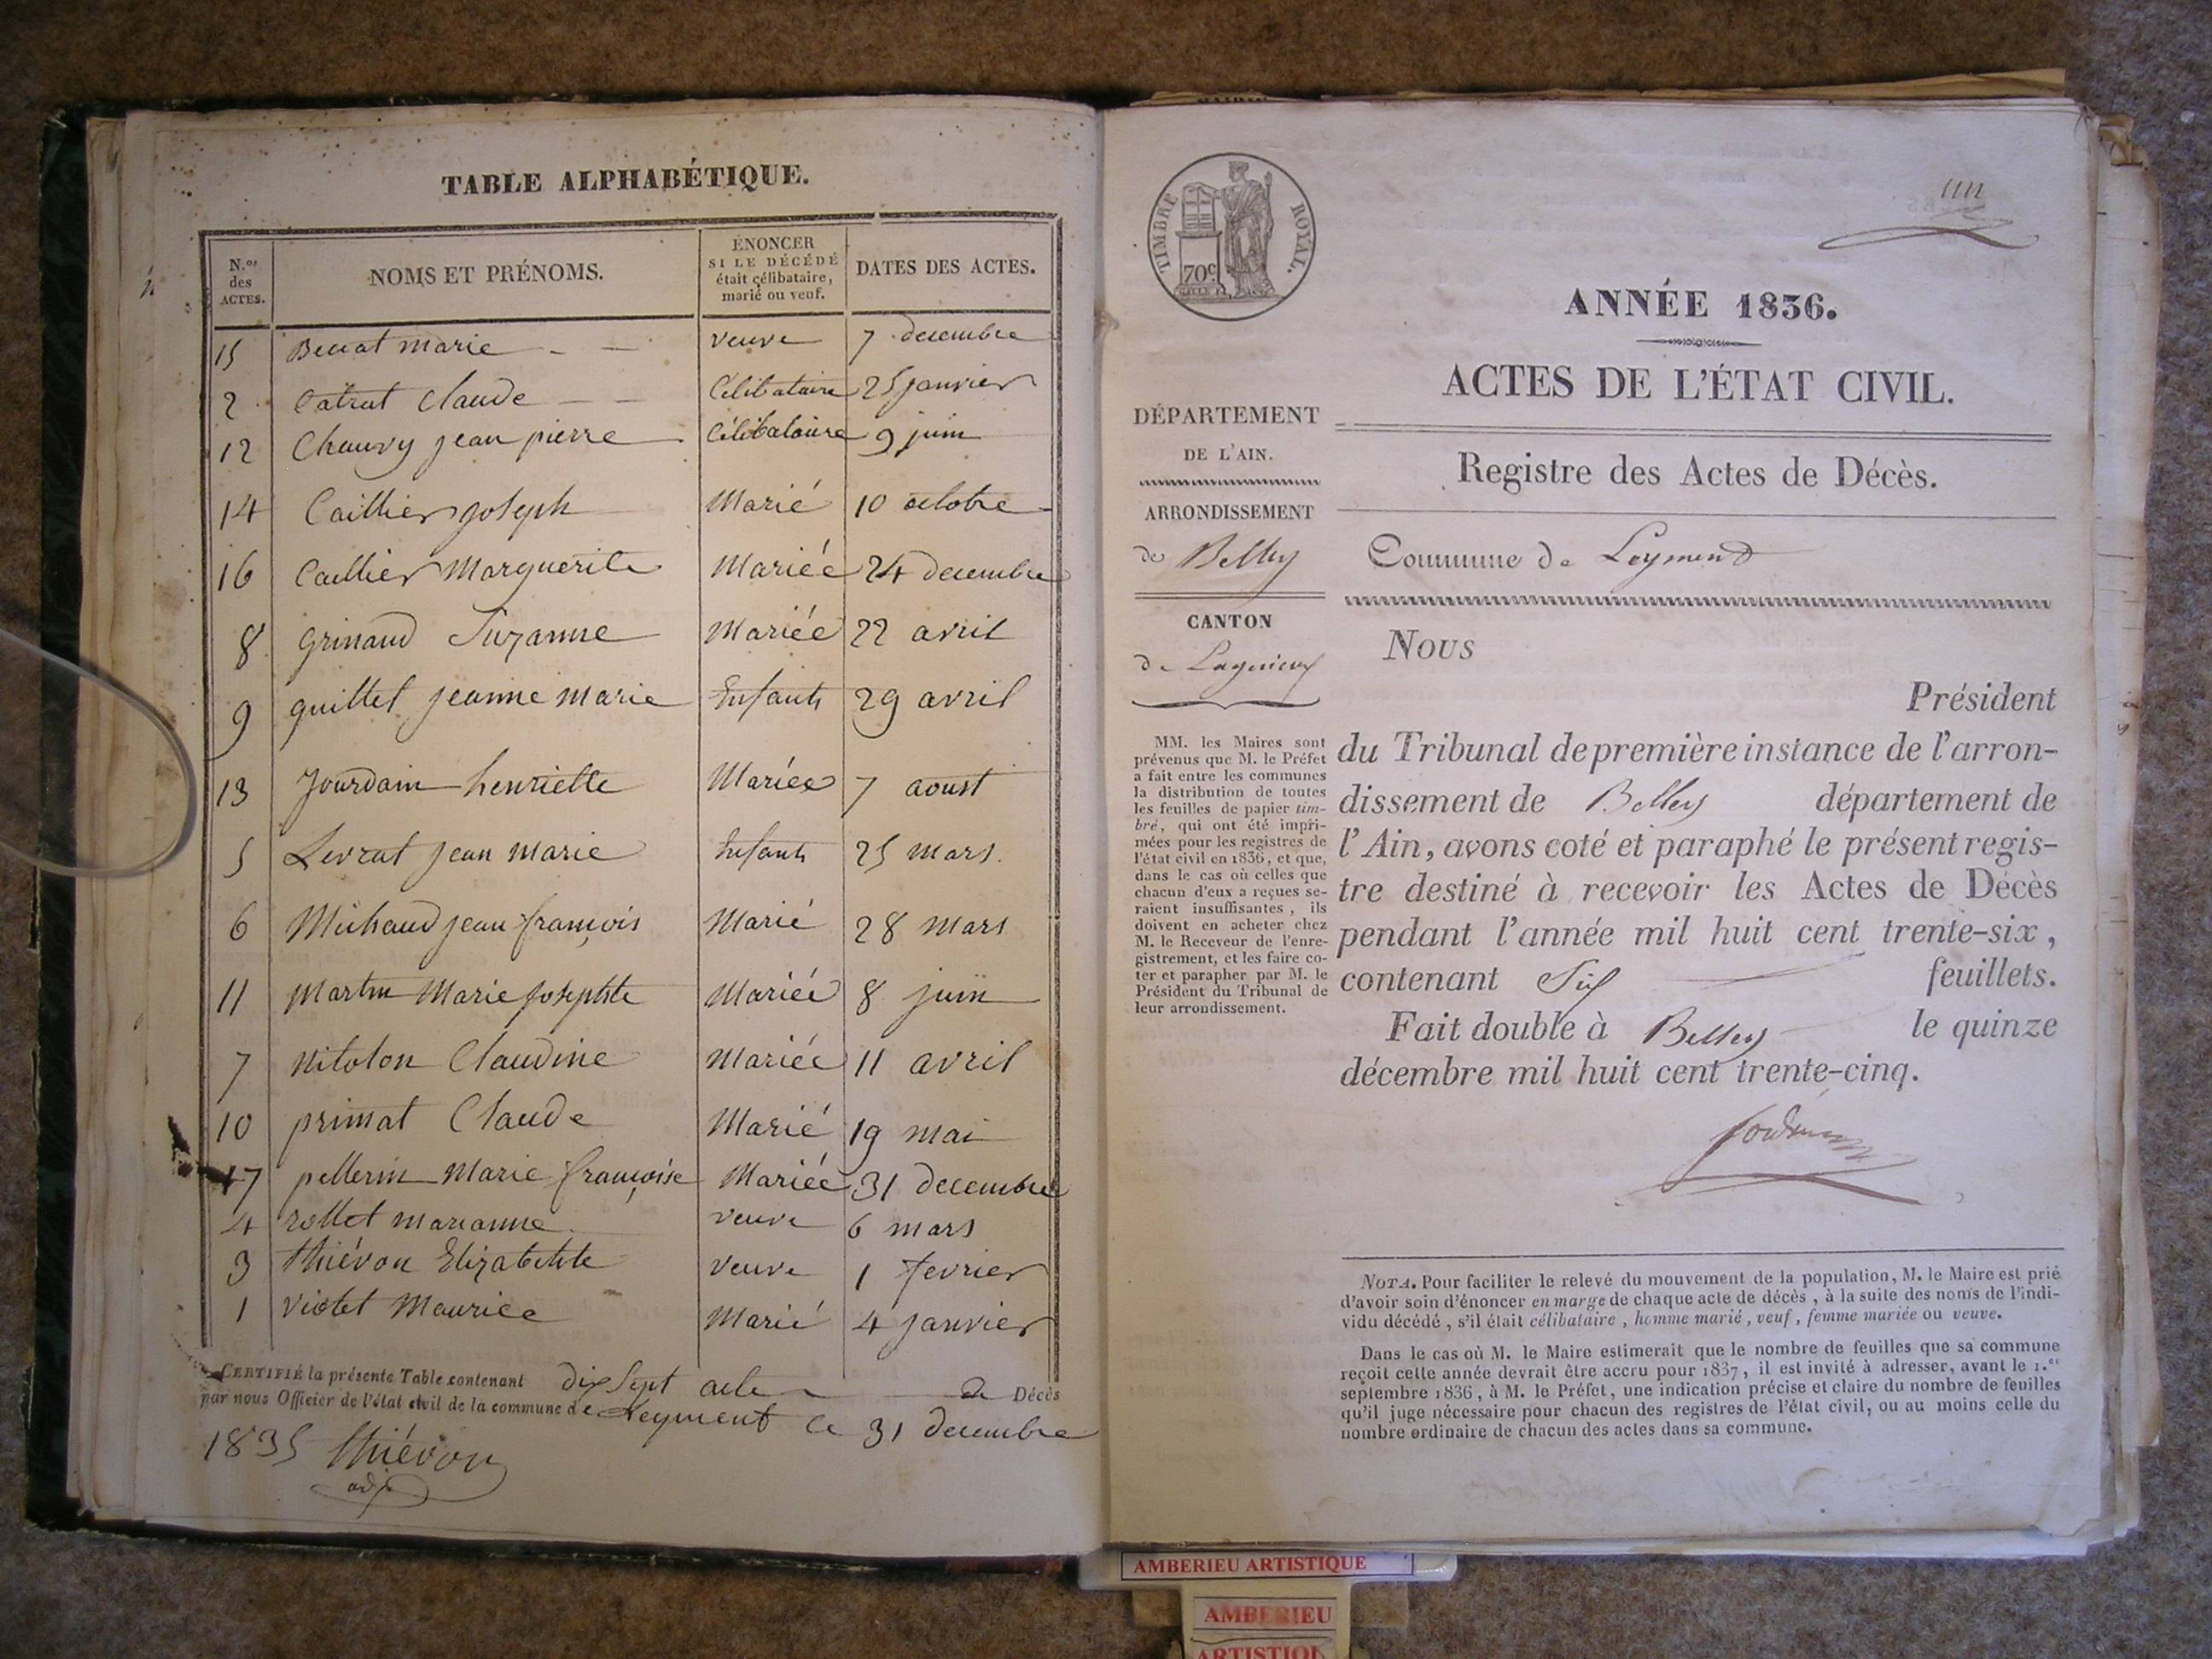 TABLE ALPHABÉTIQUE.
N.os des ACTES.
NOMS ET PRÉNOMS.
ÉNONCER
SI LE DÉCÉDÉ
était célibataire,
marié ou veuf.
DATES DES ACTES.
15 marie veuve 7 decembre
2 Catrut Claude Célibataire 25 janvier
12 Chauvy jean pierre Célibataire 9 juin
14 Caillier joseph Marié 10 octobre
16 Caillier Marguerite Mariée 24 decembre
8 grinand Suzanne Mariée 22 avril
9 guillet jeanne marie Enfant 29 avril
13 Jourdain henriette Mariée 7 aoust
5 Levrat jean marie Enfant 25 mars.
6 Michaud jean françois Marié 28 mars
11 Martin Marie josephte Mariée 8 juin
7 nitolon Claudine Mariée 11 avril
10 primat Claude Marié 19 mai
17 pellerin Marie françoise Mariée 31 decembre
4 rollet marianne veuve 6 mars
3 thiévon Elizabethte veuve 1 fevrier
1 violet Maurice Marié 4 janvier
CERTIFIÉ la présente Table contenant dix Sept acte de Décès
par nous Officier de l'état civil de la commune de Leyment ce 31 decembre
1835 thiévon
adj
TIMBRE ROYAL.
70c
ANNÉE 1836.
ACTES DE L'ÉTAT CIVIL.
Registre des Actes de Décès.
Commune de Leyment
DÉPARTEMENT
DE L'AIN.
ARRONDISSEMENT
de Belley
CANTON
de Lagnieux
MM. les Maires sont
prévenus que M. le Préfet
a fait entre les communes
la distribution de toutes
les feuilles de papier tim-
bré, qui ont été impri-
mées pour les registres de
l'état civil en 1836, et que,
dans le cas où celles que
chacun d'eux a reçues se-
raient insuffisantes, ils
doivent en acheter chez
M. le Receveur de l'enre-
gistrement, et les faire co-
ter et parapher par M. le
Président du Tribunal de
leur arrondissement.
Nous
Président
du Tribunal de première instance de l'arron-
dissement de Belley département de
l'Ain, avons coté et paraphé le présent regis-
tre destiné à recevoir les Actes de Décès
pendant l'année mil huit cent trente-six,
contenant Six feuillets.
Fait double à Belley le quinze
décembre mil huit cent trente-cinq.
NOTA. Pour faciliter le relevé du mouvement de la population, M. le Maire est prié
d'avoir soin d'énoncer en marge de chaque acte de décès, à la suite des noms de l'indi-
vidu décédé, s'il était célibataire, homme marié, veuf, femme mariée ou veuve.
Dans le cas où M. le Maire estimerait que le nombre de feuilles que sa commune
reçoit cette année devrait être accru pour 1837, il est invité à adresser, avant le 1.er
septembre 1836, à M. le Préfet, une indication précise et claire du nombre de feuilles
qu'il juge nécessaire pour chacun des registres de l'état civil, ou au moins celle du
nombre ordinaire de chacun des actes dans sa commune.
AMBERIEU ARTISTIQUE
AMBERIEU